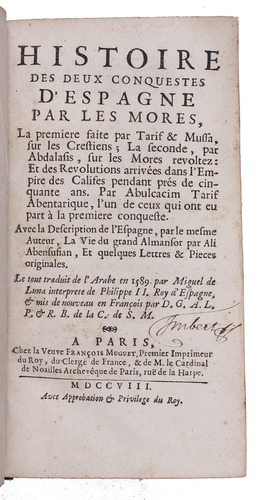 HISTOIRE
DES DEUX CONQUESTES
D'ESPAGNE
PAR LES MORES,
La premiere faite par Tarif & Mussa,
sur les Crestiens; La seconde, par
Abdalasis, sur les Mores revoltez:
Et des Revolutions arrivées dans l'Em-
pire des Califes pendant prés de cin-
quante ans. Par Abulcacim Tarif
Abentarique, l'un de ceux qui ont eu
part à la premiere conqueste.
Avec la Description de l'Espagne, par le mesme
Auteur, La Vie du grand Almansor par Ali
Abensufian, Et quelques Lettres & Pieces
originales.
Le tout traduit de l'Arabe en 1589. par Miguel de
Luna interprete de Philippe II. Roy d'Espagne,
& mis de nouveau en François par D. G. A. L.
P. & R. B. de la C. de S. M.
Imbert
A PARIS,
Chez la Veuve FRANÇOIS MUGUET, Premier Imprimeur
du Roy, du Clergé de France, & de M. le Cardinal
de Noailles Archevêque de Paris, ruë de la Harpe.
MDCCVIII.
Avec Approbation & Privilege du Roy.